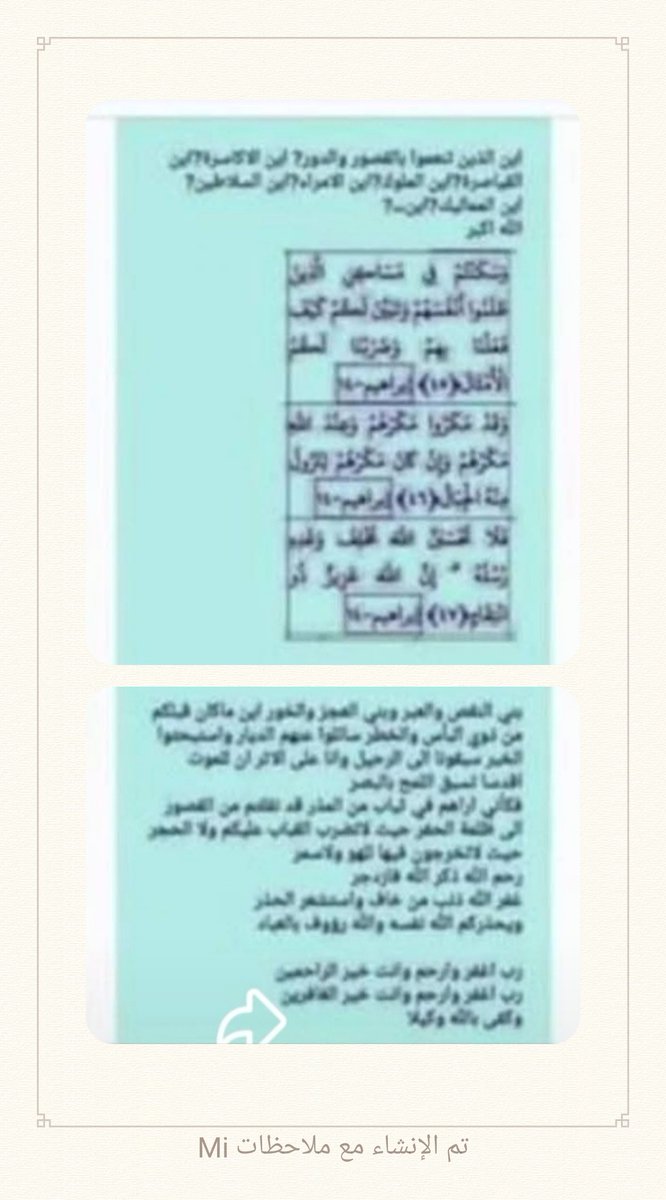 اين الذين نعموا بالقصور والدور? اين الاكاسرة?اين
القياصرة?اين الملوك?اين الامراء?اين السلاطين?
اين المماليك?اين..?
الله اكبر
وَسَكَنْتُمْ فِي مَسَاكِنِ الَّذِينَ
ظَلَمُوا أَنْفُسَهُمْ وَتَبَيَّنَ لَكُمْ كَيْفَ
فَعَلْنَا بِهِمْ وَضَرَبْنَا لَكُمُ
الْأَمْثَالَ﴿٤٥﴾ إبراهيم-١٤
وَقَدْ مَكَرُوا مَكْرَهُمْ وَعِنْدَ اللَّهِ
مَكْرُهُمْ وَإِنْ كَانَ مَكْرُهُمْ لِتَزُولَ
مِنْهُ الْجِبَالُ﴿٤٦﴾ إبراهيم-١٤
فَلَا تَحْسَبَنَّ اللَّهَ مُخْلِفَ وَعْدِهِ
رُسُلَهُ ۗ إِنَّ اللَّهَ عَزِيزٌ ذُو
انْتِقَامٍ﴿٤٧﴾ إبراهيم-١٤
بني النقص والعبر وبني العجز والخور اين ماكان قبلكم
من ذوي البأس والخطر سائلوا عنهم الديار واستبحثوا
الخبر سبقونا الى الرحيل وانا على الاثر ان للموت
اقدما تسبق اللمح بالبصر
فكأني اراهم في ثياب من المدر قد نقلتم من القصور
الى ظلمة الحفر حيث لاتضرب القباب عليكم ولا الحجر
حيث لاتخرجون فيها للهو ولاسمر
رحم الله ذكر الله فازدجر
غفر الله ذنب من خاف واستشعر الحذر
ويحذركم الله نفسه والله رؤوف بالعباد
رب اغفر وارحم وانت خير الراحمين
رب اغفر وارحم وانت خير الغافرين
وكفى بالله وكيلا
تم الإنشاء مع ملاحظات Mi